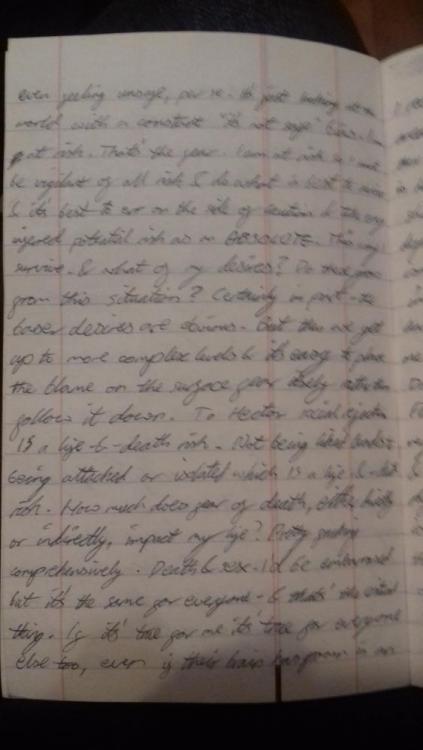 even feeling unsafe, per se. It's just looking at the
world with a constant "it's not safe" bias. I am
at risk. That's the fear. I am at risk so I must
be vigilant of all risk & do what is best to survive
& it's best to err on the side of caution & take any
inferred potential risk as an ABSOLUTE. This way I
survive. & what of my desires? Do these grow
from this situation? Certainly in part - the
baser desires are obvious. But then we get
up to more complex levels & it's easy to place
the blame on the surface fear rather
follow it down. To Hector social rejection
IS a life-&-death risk. Not being liked
being attacked or isolated which IS a life & death
risk. How much does fear of death, either directly
or indirectly, impact my life? Pretty
comprehensively. Death & sex. I'd be embarrassed
but it's the same for everyone - & that's the
thing. If it's true for me it's true for everyone
else too, even if their brain in an